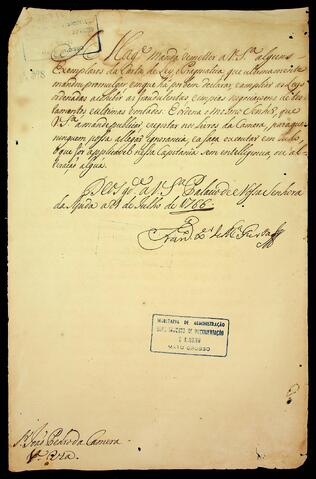 S. Mag.e Manda remetter a V. S.a alguns
Exemplares da Carta de Ley, e Pragmatica que ultimamente
mandou promulgar em que há por bem declarar, e ampliar as Leys
ordenadas a cohibir as fraudulentas e impias negociaçoens de tes-
tamentos e ultimas vontades. E ordena o mesmo Senhor, que
V. S.a a mande publicar, e registar nos Livros da Camera, para que
ninguem possa allegar ignorancia, e a faça executar em tudo
o que for applicavel nessa Capitania sem intelligencia ou al-
teração alguma.
Deos g.e a V. S.a Palacio de Nossa Senhora
da Ajuda a 21 de Julho de 1766.
Fran.co X.er de M.ça Furtado
SECRETARIA DE ADMINISTRAÇÃO
DEPARTAMENTO DE DOCUMENTAÇÃO
MATO GROSSO
S.r João Pedro da Camera